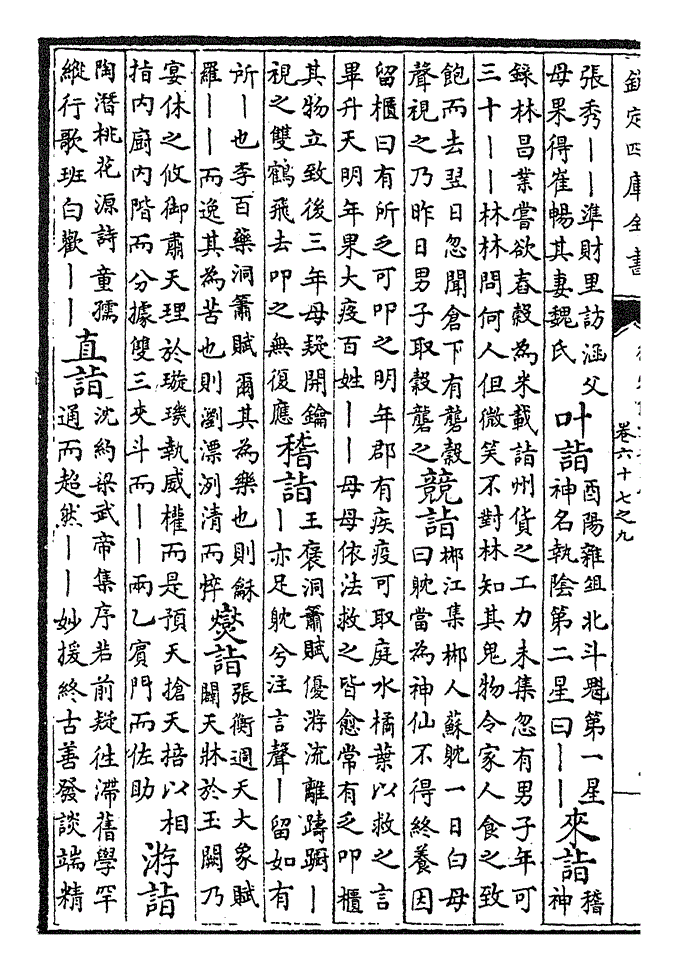 欽定四庫全書
卷六十七之九
張秀丨丨準財里訪涵父
母果得崔暢其妻魏氏
叶詣
酉陽雜俎北斗魁第一星
神名執陰第二星曰丨丨
來詣
稽
神
錄林昌業嘗欲舂穀為米載詣州貨之工力未集忽有男子年可
三十丨丨林林問何人但微笑不對林知其鬼物令家人食之致
飽而去翌日忽聞倉下有礱穀
聲視之乃昨日男子取穀礱之
競詣
郴江集郴人蘇耽一日白母
曰耽當為神仙不得終養因
留櫃曰有所乏可叩之明年郡有疾疫可取庭水橘葉以救之言
畢升天明年果大疫百姓丨丨母母依法救之皆愈常有乏叩櫃
其物立致後三年母疑開鑰
視之雙鶴飛去叩之無復應
稽詣
王褒洞簫賦優游流離躊躕丨
丨亦足耽兮注言聲丨留如有
所丨也李百藥洞簫賦爾其為樂也則龢
羅丨丨而逸其為苦也則瀏漂洌清而悴
爕詣
張衡週天大象賦
闢天牀於玉闕乃
宴休之攸御肅天理於璇璣執威權而是預天搶天掊以相
指内廚内階而分據雙三夾斗而丨丨兩乙賓門而佐助
游詣
陶潛桃花源詩童孺
縱行歌班白歡丨丨
直詣
沈約梁武帝集序若前疑往滯舊學罕
通而超然丨丨妙援終古善發談端精